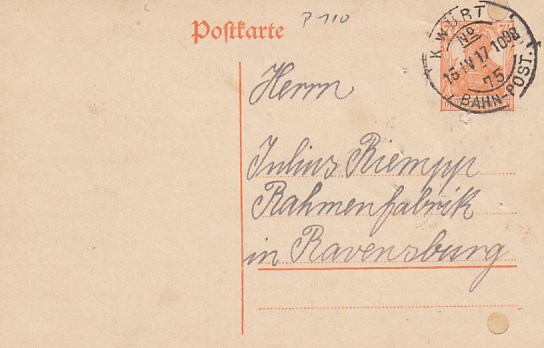 P 110
Postkarte
K. WÜRT
No
15 IV 17 1098
75
BAHN-POST.
Herrn
Julius Riempp
Rahmenfabrik
in Ravensburg